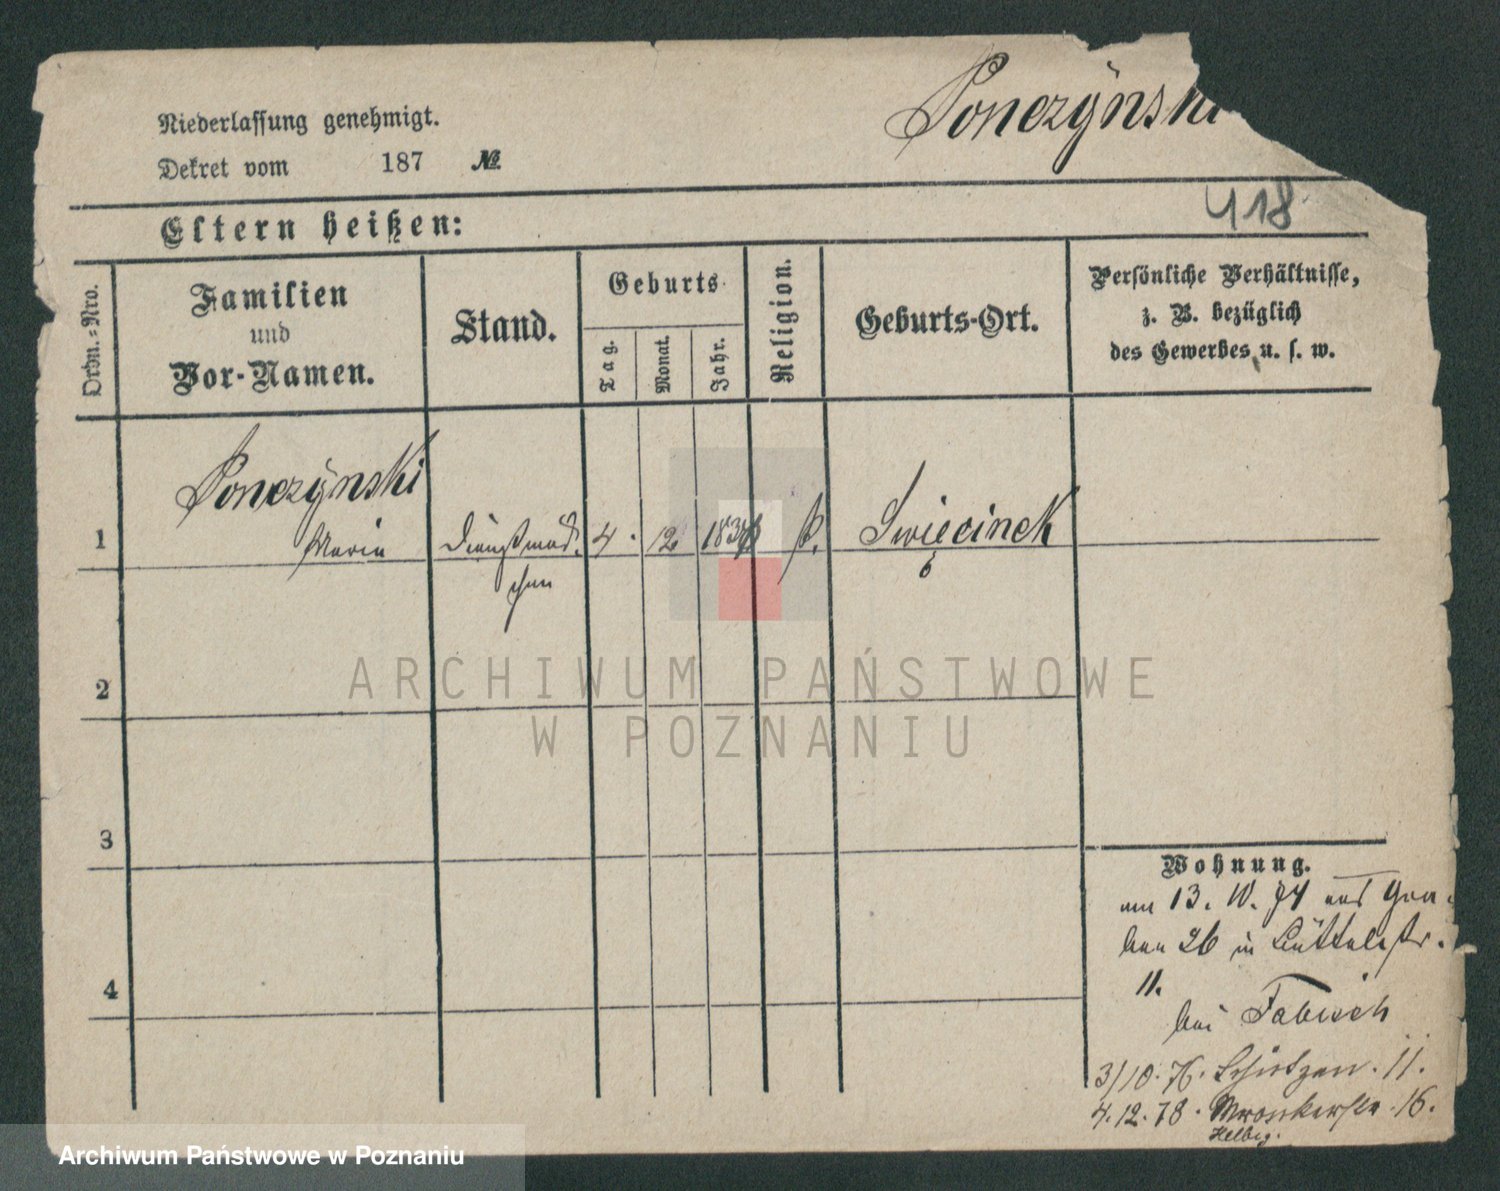 Niederlassung genehmigt.
Dekret vom 187 №
Ponczÿnski
418
Eltern heißen:
Ordn.-Nro.
Familien
und
Vor-Namen.
Stand.
Geburts-
Tag.
Monat.
Jahr.
Religion.
Geburts-Ort.
Persönliche Verhältnisse,
z. B. bezüglich
des Gewerbes u. s. w.
Ponczÿnski
1 Maria Dienstmäd- 4. 12 k. Święcinek
chen
2
3
4
Wohnung.
am 13. 10. 74 aus Gra-
ben 26 in Büttelstr.
11.
bei Fabisch
3/10. 76. Schützen. 11.
4.12.78. Wronkerstr. 16.
Helbig.
ARCHIWUM PAŃSTWOWE
W POZNANIU
Archiwum Państwowe w Poznaniu